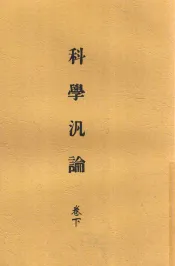 科學汎論
卷下